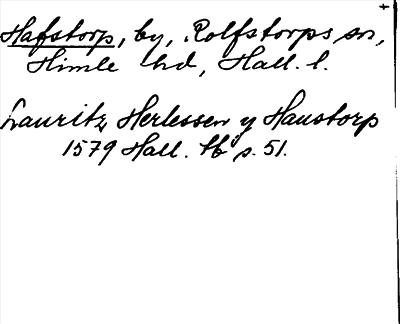 Hafstorp, by, Rolfstorps sn,
Himle hd, Hall. l.
Lauritz Herlessen y Haustorp
1579 Hall. tb s. 51.